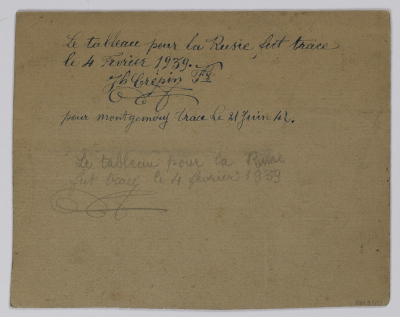 Le tableau pour la Rusie fut trace
le 4 Fevrier 1939.
Jh Crépin Fs
pour montgomouy trace le 21 Juin 42.
Le tableau pour la Rusie
fut tracé le 4 fevrier 1939